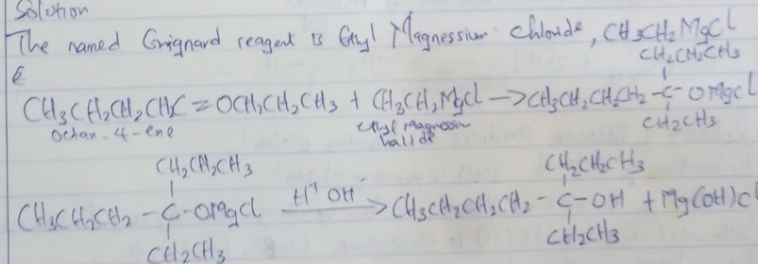 Solution
The named Grignard reagent is Ethyl Magnessium Chloride, CH3CH2MgCl
CH2CH2CH3
CH3CH2CH2CH2C=OCH2CH2CH3 + CH3CH2MgCl -> CH3CH2CH2CH2-C-OMgCl
Octan-4-ene ethyl magnesium halide CH2CH3
CH2CH2CH3 CH2CH2CH3
CH3CH2CH2CH2-C-OMgCl H+ OH- -> CH3CH2CH2CH2-C-OH + Mg(OH)Cl
CH2CH3 CH2CH3